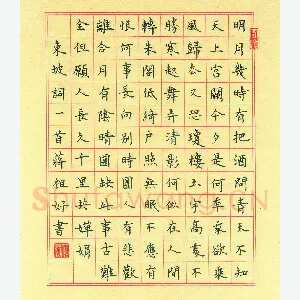 明月幾時有把酒問青天不知
天上宮闕今夕是何年我欲乘
風歸去又恐瓊樓玉宇高處不
勝寒起舞弄清影何似在人間
轉朱閣低綺戶照無眠不應有
恨何事長向別時圓人有悲歡
離合月有陰晴圓缺此事古難
全但願人長久千里共嬋娟
東坡詞一首蔣祖好書